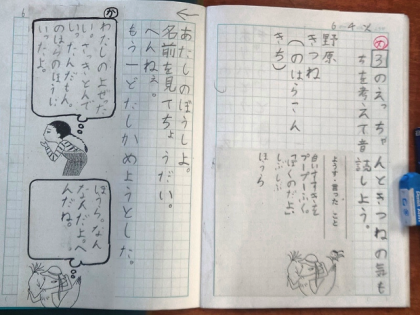 6-4-火
め
③のえっちゃんときつねの気も
ちを考えて音読しよう。
野原
きつね
(のはらさん
きち)
ようす・言った こと
白いすすきを
ぼくのだよ。
ほうら
あたしのぼうしよ。
名前を見てちょうだい。
へんねえ。
もう一どたしかめようとした。
か
わたしの上をとん
だんだもん。
のはらのほうに
いったよ。
ほうら。なん
なんだよ。へ
んだね。